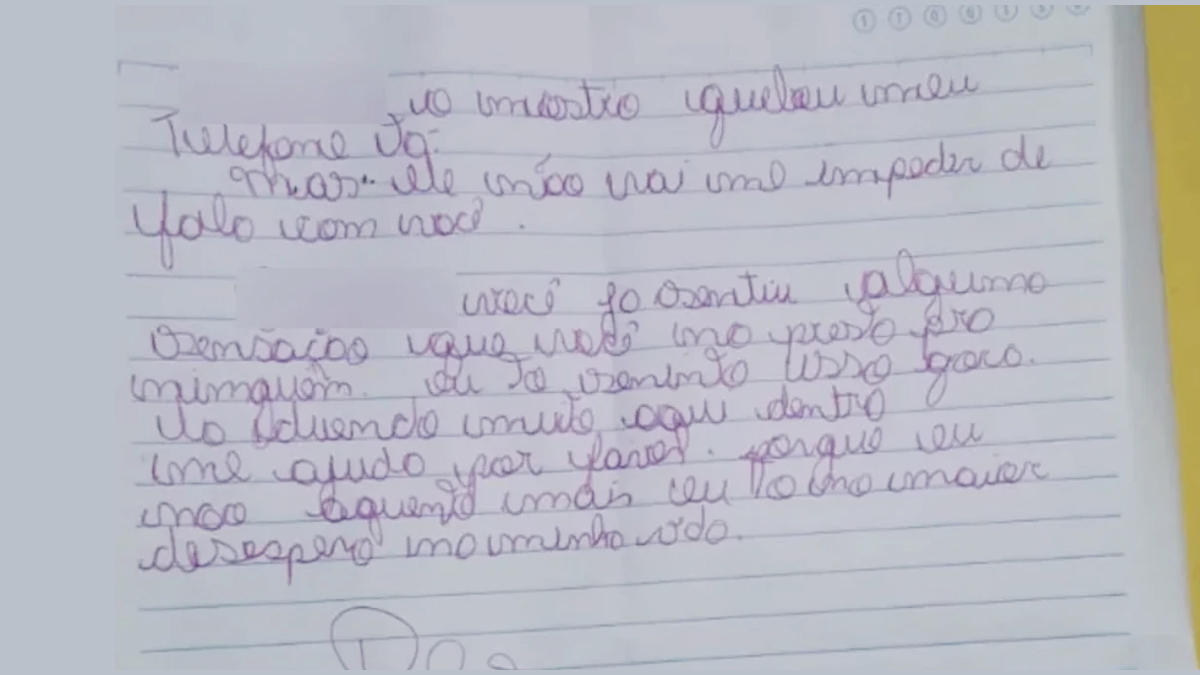 o mostro quebou meu
Telefone Ja.
mas ele não vai me impeder de
falo com você.
você ja sentiu alguma
sensação que você no presta pra
ninguém. eu to seninto isso gora.
Ta duendo muito aqui dentro
me ajuda por favor. porque eu
nao aguento mais eu to no maior
desespero na minha vida.